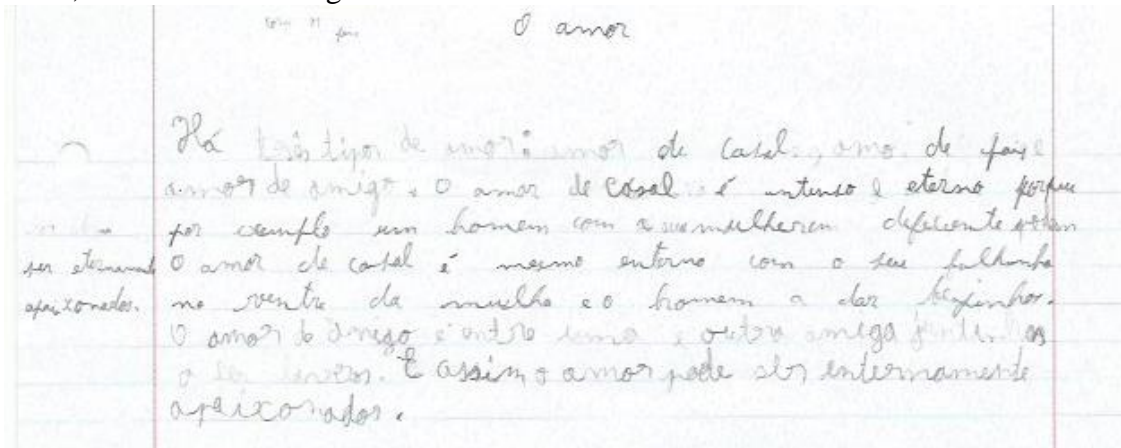 com
O amor
Há três tipos de amor: amor de casal, amo. de pais e
amor de amigo. O amor de casal é intenso e eterno porque
por exemplo um homem com a sua mulher em deficiente
ser eternamente O amor de casal é mesmo enterno com o seu
apaixonados. no ventre da mulhe e o homem a dar bejinhos.
O amor de amigo é entre uma e outra amiga juntinhas
a ler livros. E assim o amor pode ser enternamente
apaixonados.